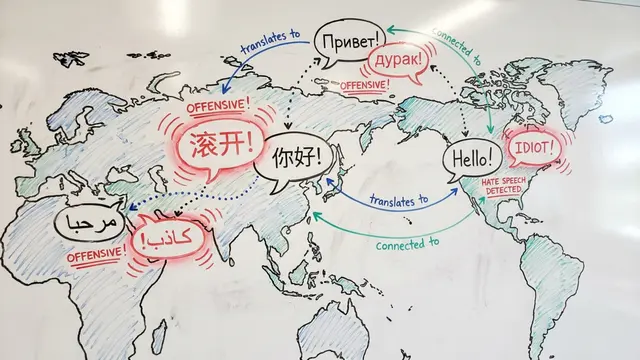 translates to
Привет!
дурак!
connected to
OFFENSIVE!
OFFENSIVE!
滚开!
你好!
Hello!
IDIOT!
HATE SPEECH
DETECTED.
translates to
connected to
مرحبا
كاذب!
OFFENSIVE!